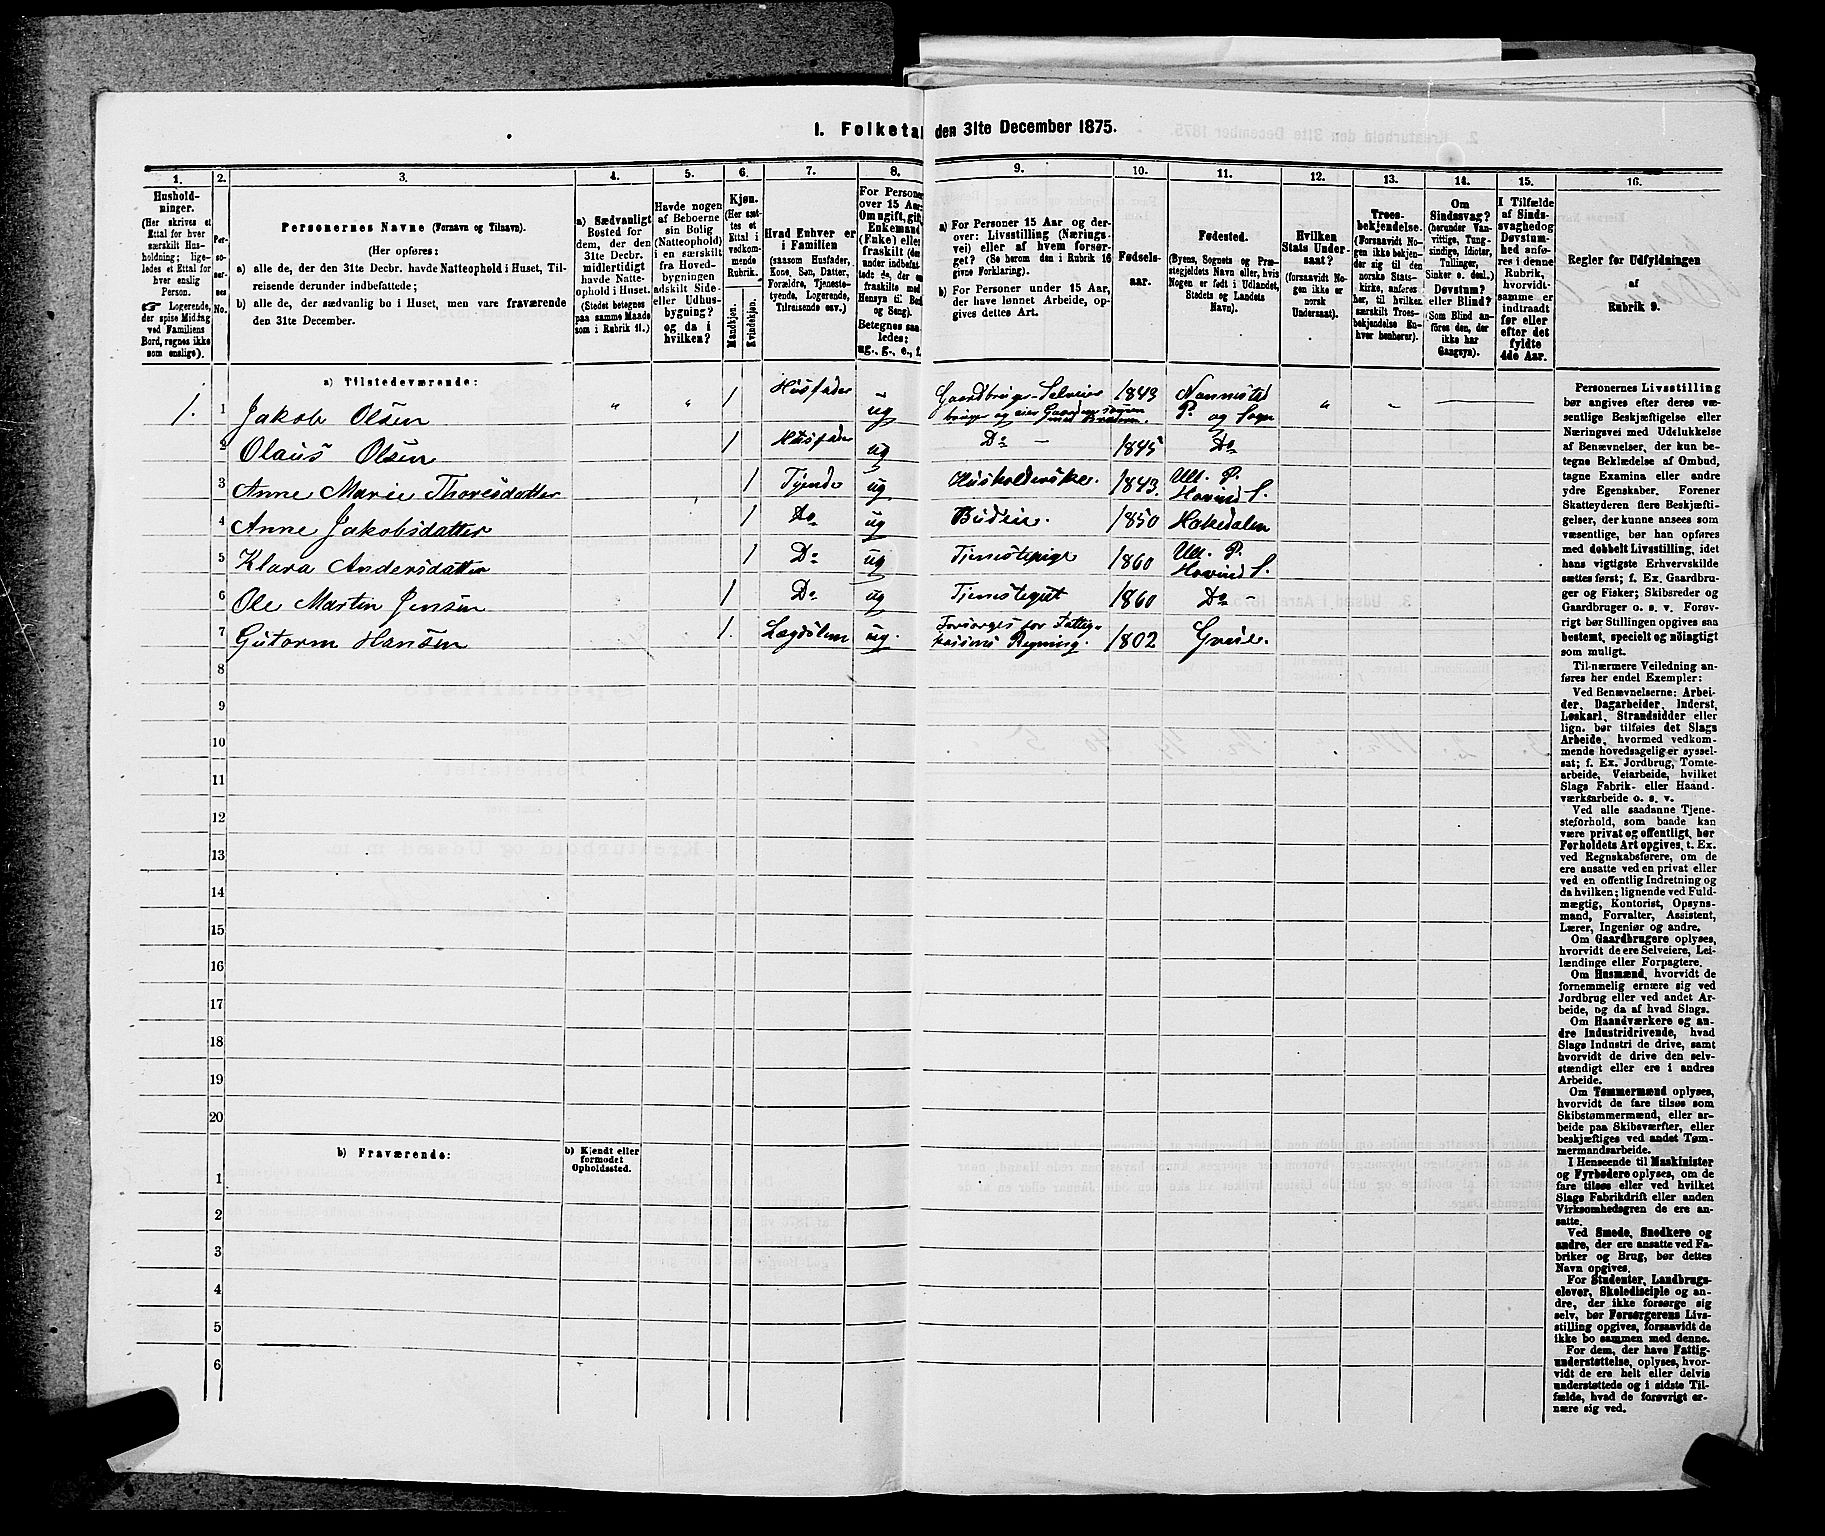 1. Folketal den 31te December 1875.
1. 2. 3. 4. 5. 6. 7. 8. 9. 10. 11. 12. 13. 14. 15. 16.
Hushold-
ninger.
(Her skrives et
Ettal for hver
særskilt Hus-
holdning; lige-
ledes et Ettal for
hver enslig
Person.
Logerende,
der spise Middag
ved Familiens
Bord, regnes ikke
som enslige).
Per-
soner-
nes
No.
Personernes Navne (Fornavn og Tilnavn).
(Her opføres:
a) alle de, der den 31te Decbr. havde Natteophold i Huset, Til-
reisende derunder indbefattede;
b) alle de, der sædvanlig bo i Huset, men vare fraværende
den 31te December.
a) Sædvanligt
Bosted for
dem, der den
31te Decbr.
midlertidigt
havde Natte-
ophold i Huset.
(Stedet betegnes
paa samme Maade
som i Rubrik 11.)
Havde nogen
af Beboerne
sin Bolig
(Natteophold)
i en særskilt
fra Hoved-
bygningen
adskilt Side-
eller Udhus-
bygning?
og da i
hvilken?
Kjøn.
(Her sæt-
tes et
Ettal i
vedkom-
mende
Rubrik.
Mandkjøn.
Kvindekjøn.
Hvad Enhver er
i Familien
(saasom Husfader,
Kone, Søn, Datter,
Forældre, Tjeneste-
tyende, Logerende,
Tilreisende osv.)
For Personer
over 15 Aar:
Om ugift, gift,
Enkemand
(Enke) eller
fraskilt (der-
under indbefat-
tede de, der ere
fraskilte med
Hensyn til Bord
og Seng).
Betegnes saa-
ledes:
ug., g., e., f.
a) For Personer 15 Aar og der-
over: Livsstilling (Nærings-
vei) eller af hvem forsør-
get? (Se herom den i Rubrik 16
givne Forklaring).
b) For Personer under 15 Aar,
der have lønnet Arbeide, op-
gives dettes Art.
Fødsels-
aar.
Fødested.
(Byens, Sognets og Præ-
stegjeldets Navn eller, hvis
Nogen er født i Udlandet,
Stedets og Landets
Navn).
Hvilken
Stats Under-
saat?
(forsaavidt No-
gen ikke er
norsk
Undersaat).
Troes-
bekjendelse.
(Forsaavidt No-
gen ikke bekjen-
der sig til den
norske Stats-
kirke, anføres
her, til hvilken
særskilt Troes-
bekjendelse En-
hver henhører).
Om
Sindssvag?
(herunder Van-
vittige, Tung-
sindige, Idioter,
Tullinger,
Sinker o. desl.)
Døvstum?
eller Blind?
(Som Blind an-
føres den, der
ikke har
Gangsyn).
I Tilfælde
af Sinds-
svaghed og
Døvstum-
hed anfø-
res i denne
Rubrik,
hvorvidt
samme er
indtraadt
før eller
efter det
fyldte
4de Aar.
Regler for Udfyldningen
af
Rubrik 9.
a) Tilstedeværende:
1. 1 Jakob Olsen " " 1 Husfader ug Gaardbruger Selveier 1843 Nannestad P. og Sogn " "
bruger og eier Gaarden sammen med Broderen.
2 Olaus Olsen 1 Husfader ug Do - 1845 Do
3 Anne Marie Thoresdatter 1 Tyende ug Husholderske. 1843. Ull. P. Hovind S.
4 Anne Jakobsdatter 1 Do ug Budeie. 1850 Hakedalen
5 Klara Andersdatter 1 Do ug Tjenestepige 1860 Ull. P. Hovind S.
6 Ole Martin Jensen 1 Do ug Tjenestegut 1860 Do -
7 Gutorm Hansen 1. Lægdslem ug. Forsørges for Fattig-
kassens Regning. 1802 Greie.
8
9
10
11
12
13
14
15
16
17
18
19
20
b) Fraværende: b) Kjendt eller
formodet
Opholdssted.
1
2
3
4
5
6
Personernes Livsstilling
bør angives efter deres væ-
sentlige Beskjæftigelse eller
Næringsvei med Udelukkelse
af Benævnelser, der kun be-
tegne Beklædelse af Ombud,
tagne Examina eller andre
ydre Egenskaber. Forener
Skatteyderen flere Beskjæfti-
gelser, der kunne ansees som
væsentlige, bør han opføres
med dobbelt Livsstilling, idet
hans vigtigste Erhvervskilde
sættes først; f. Ex. Gaardbru-
ger og Fisker; Skibsreder og
Gaardbruger o. s. v. Forøv-
rigt bør Stillingen opgives saa
bestemt, specielt og nøiagtigt
som muligt.
Til nærmere Veiledning an-
føres her endel Exempler:
Ved Benævnelserne: Arbei-
der, Dagarbeider, Inderst,
Løskarl, Strandsidder eller
lign. bør tilføies det Slags
Arbeide, hvormed vedkom-
mende hovedsagelig er syssel-
sat; f. Ex. Jordbrug, Tomte-
arbeide, Veiarbeide, hvilket
Slags Fabrik- eller Haand-
værksarbeide o. s. v.
Ved alle saadanne Tjene-
steforhold, som baade kan
være privat og offentligt, bør
Forholdets Art opgives, t. Ex.
ved Regnskabsførere, om de
ere ansatte ved en privat eller
ved en offentlig Indretning og
da hvilken; lignende ved Fuld-
mægtig, Kontorist, Opsyns-
mand, Forvalter, Assistent,
Lærer, Ingeniør og andre.
Om Gaardbrugere oplyses,
hvorvidt de ere Selveiere, Lei-
lændinge eller Forpagtere.
Om Husmænd, hvorvidt de
fornemmelig ernære sig ved
Jordbrug eller ved andet Ar-
beide, og da af hvad Slags.
Om Haandværkere og an-
dre Industridrivende, hvad
Slags Industri de drive, samt
hvorvidt de drive den selv-
stændigt eller ere i andres
Arbeide.
Om Tømmermænd oplyses,
hvorvidt de fare tilsøs som
Skibstømmermænd, eller ar-
beide paa Skibsværfter, eller
beskjæftiges ved andet Tøm-
mermandsarbeide.
I Henseende til Maskinister
og Fyrbødere oplyses, om de
fare tilsøs eller ved hvilket
Slags Fabrikdrift eller anden
Virksomhedsgren de ere an-
satte.
Ved Smede, Snedkere og
andre, der ere ansatte ved Fa-
briker og Brug, bør dettes
Navn opgives.
For Studenter, Landbrugs-
elever, Skoledisciple og an-
dre, der ikke forsørge sig
selv, bør Forsørgerens Livs-
stilling opgives, forsaavidt de
ikke bo sammen med denne.
For dem, der have Fattig-
understøttelse, oplyses, hvor-
vidt de ere helt eller delvis
understøttede og i sidste Til-
fælde, hvad de forøvrigt er-
nære sig ved.